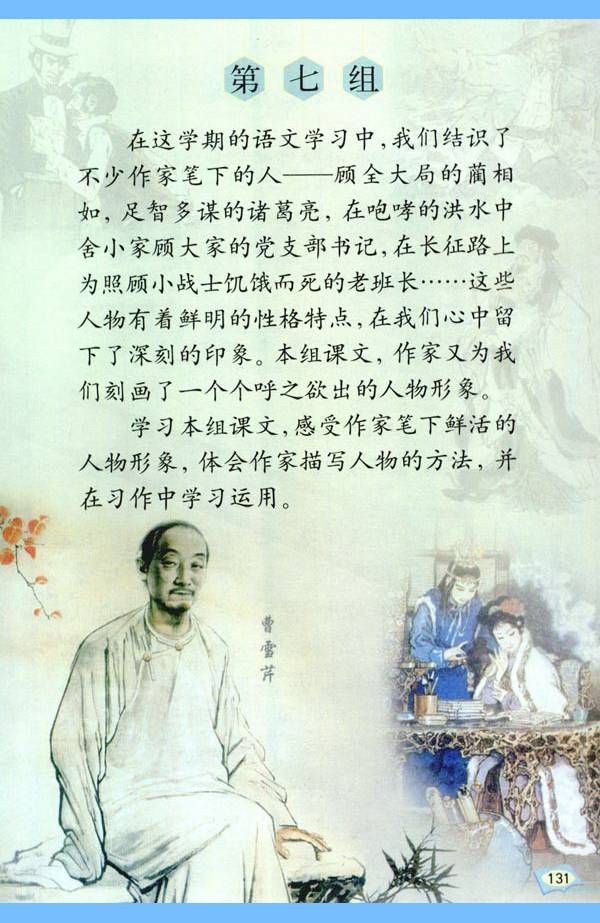 第七组
在这学期的语文学习中，我们结识了
不少作家笔下的人——顾全大局的蔺相
如，足智多谋的诸葛亮，在咆哮的洪水中
舍小家顾大家的党支部书记，在长征路上
为照顾小战士饥饿而死的老班长……这些
人物有着鲜明的性格特点，在我们心中留
下了深刻的印象。本组课文，作家又为我
们刻画了一个个呼之欲出的人物形象。
学习本组课文，感受作家笔下鲜活的
人物形象，体会作家描写人物的方法，并
在习作中学习运用。
曹雪芹
131